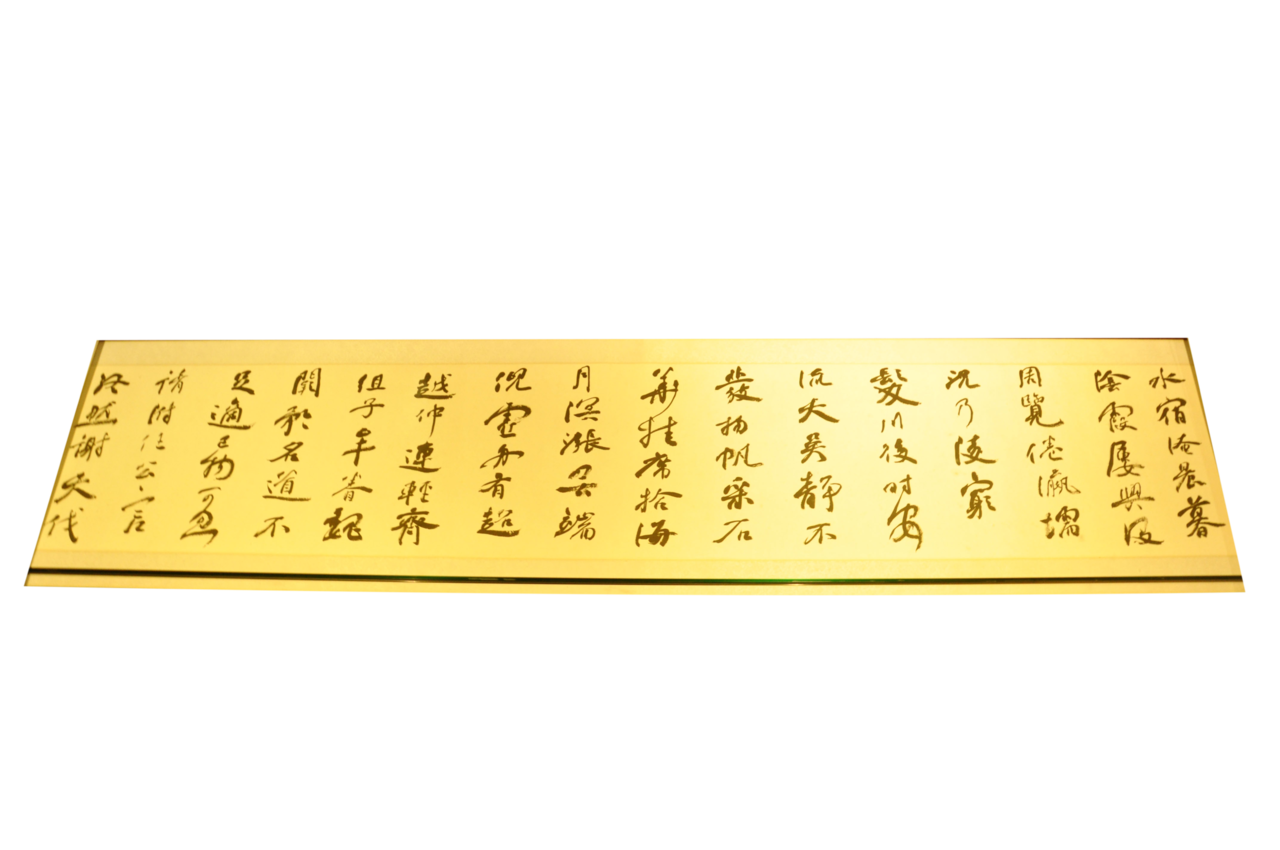 水宿淹晨暮
陰霞屢興没
周覽倦瀛壖
况乃陵窮
髮川後時安
流天吳靜不
發揚帆采石
華挂席拾海
月溟漲無端
倪虛舟有超
越仲連輕齊
組子牟眷魏
闕矜名道不
足適己物可忽
請附任公言
終然謝天伐